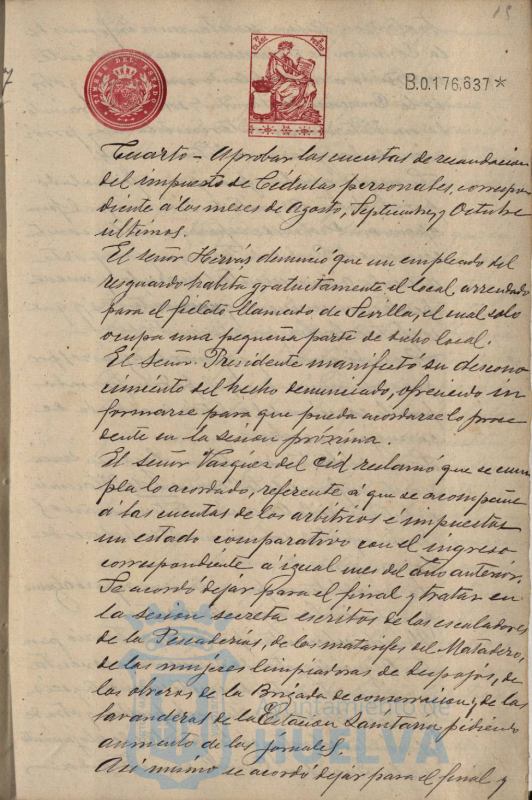 15
TIMBRE DEL ESTADO
B.0.176,637*
Cuarto - Aprobar las cuentas de recaudacion
del impuesto de Cédulas personales, correspon
diente á los meses de Agosto, Septiembre y Octubre
últimos.
El señor Hervás denunció que un empleado del
resguardo habita gratuitamente el local arrendado
para el fielato llamado de Sevilla, el cual solo
ocupa una pequeña parte de dicho local.
El Señor Presidente manifestó su descono
cimiento del hecho denunciado, ofreciendo in
formarse para que pueda acordarse lo proce
dente en la sesion próxima.
El señor Vazquez del Cid reclamó que se cum
pla lo acordado, referente á que se acompañe
a las cuentas de los arbitrios é impuestos
un estado comparativo con el ingreso
correspondiente á igual mes del año anterior.
Se acordó dejar para el final y tratar en
la sesion secreta escritos de los escaladores
de la Pescadería, de los matarifes del Matadero,
de las mujeres limpiadoras de despojos, de
los obreros de la Brigada de conservacion y de las
lavanderas de la Estacion Sanitaria pidiendo
aumento de los jornales.
Asi mismo se acordó dejar para el final y
Ayuntamiento de
HUELVA